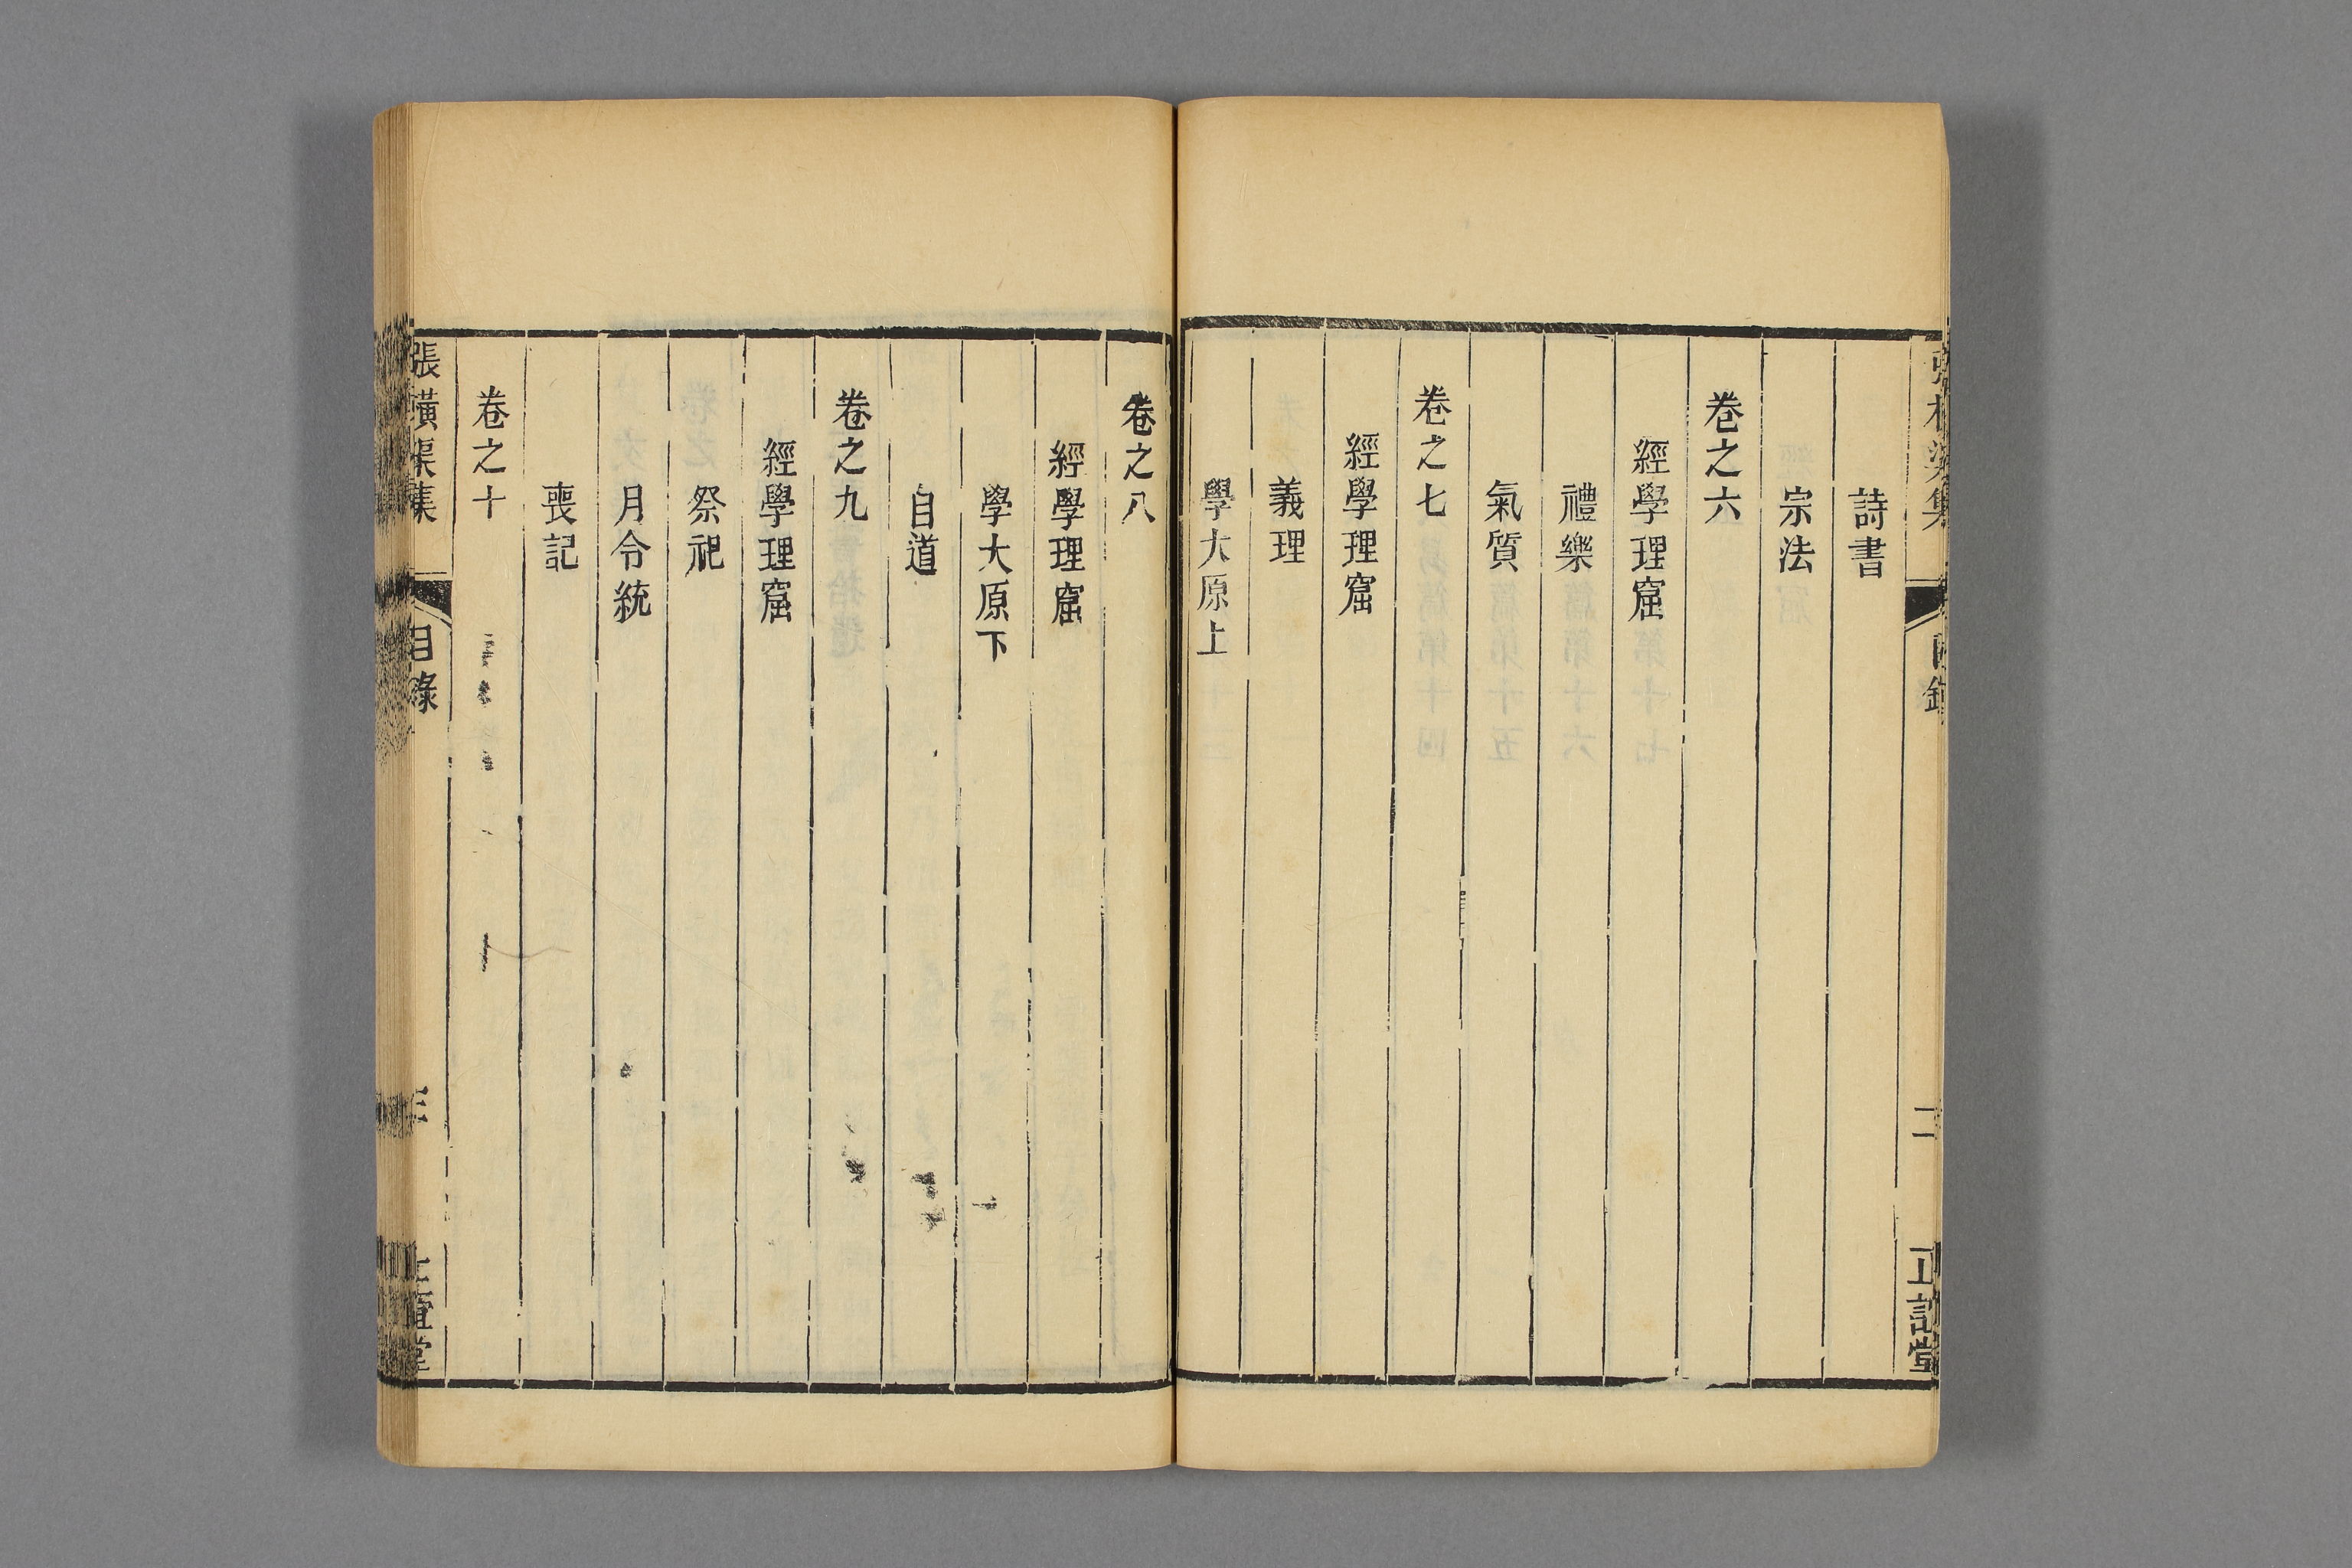 詩書
宗法
卷之六
經學理窟
禮樂
氣質
卷之七
經學理窟
義理
學大原上
卷之八
經學理窟
學大原下
自道
卷之九
經學理窟
祭祀
月令統
喪記
卷之十
張橫渠集
目錄
三
正誼堂